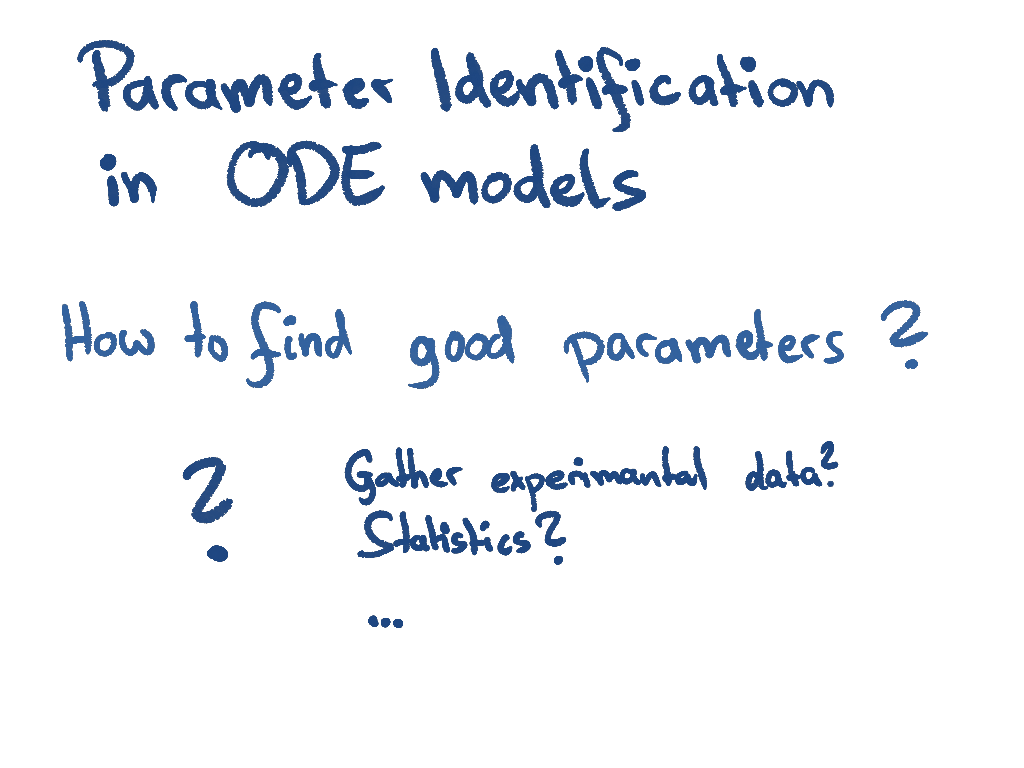 Parameter Identification
in ODE models
How to find good parameters ?
? Gather experimantal data?
Statistics?
...